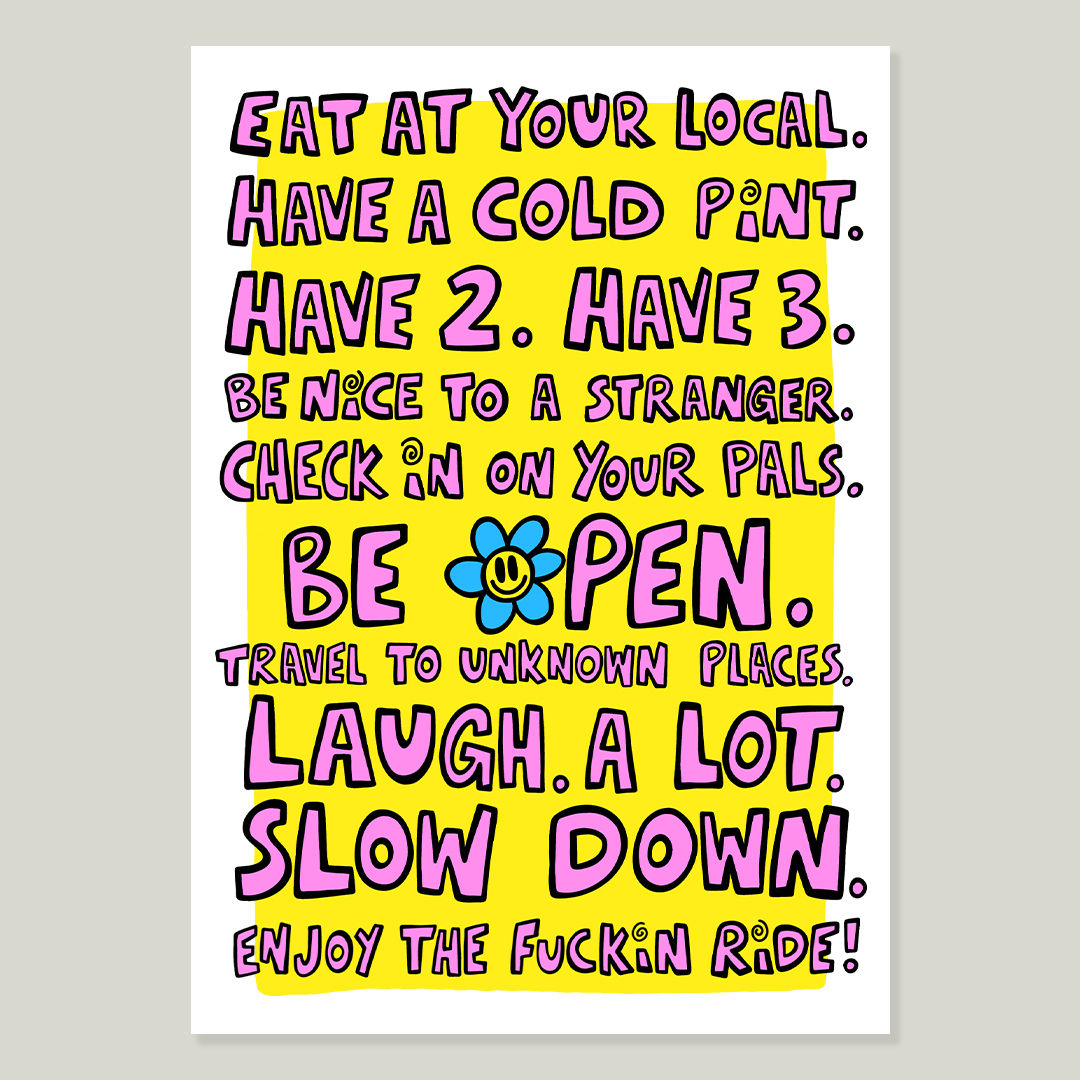 EAT AT YOUR LOCAL.
HAVE A COLD PiNT.
HAVE 2. HAVE 3.
BE NiCE TO A STRANGER.
CHECK iN ON YOUR PALS.
BE OPEN.
TRAVEL TO UNKNOWN PLACES.
LAUGH. A LOT.
SLOW DOWN.
ENJOY THE FUCKiN RiDE!